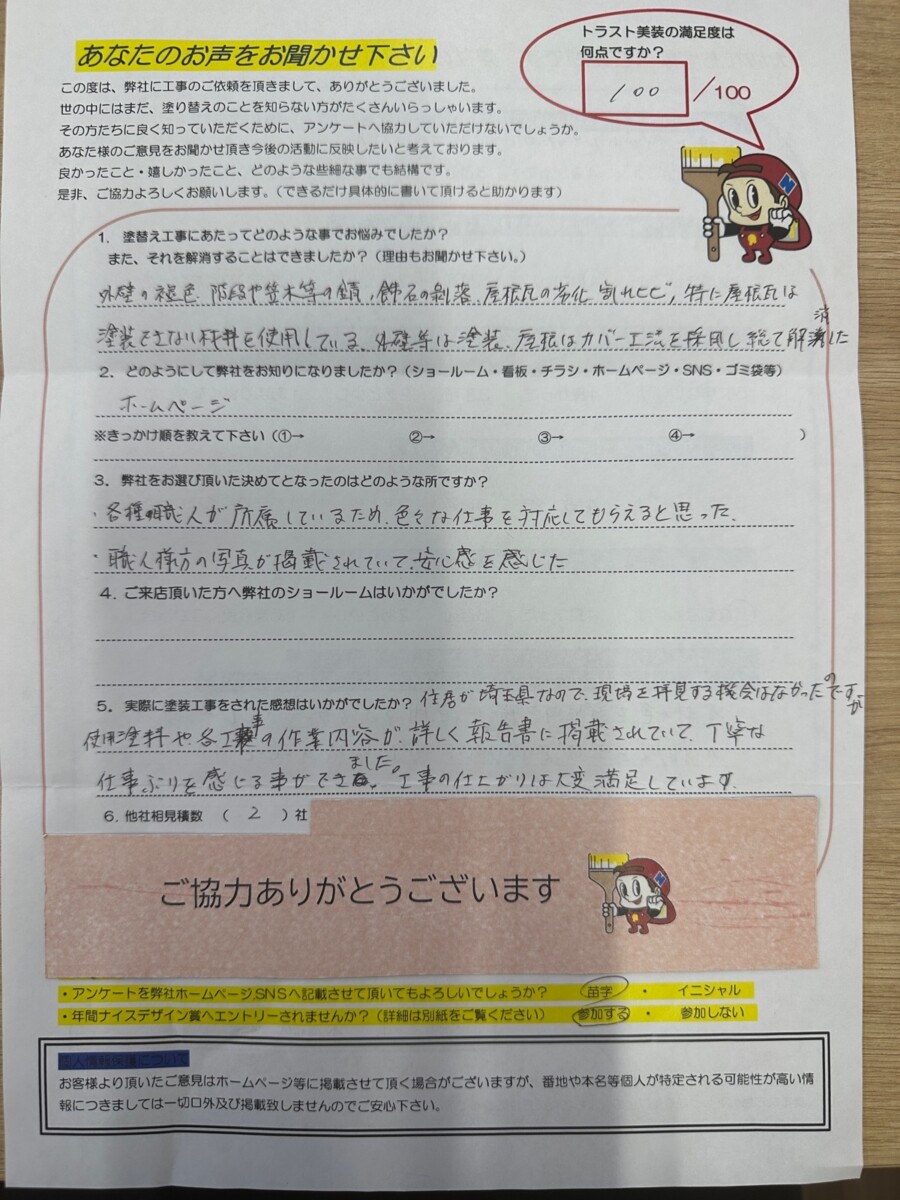 あなたのお声をお聞かせ下さい
トラスト美装の満足度は
何点ですか？
100／100
この度は、弊社に工事のご依頼を頂きまして、ありがとうございました。
世の中にはまだ、塗り替えのことを知らない方がたくさんいらっしゃいます。
その方たちに良く知っていただくために、アンケートへ協力していただけないでしょうか。
あなた様のご意見をお聞かせ頂き今後の活動に反映したいと考えております。
良かったこと・嬉しかったこと、どのような些細な事でも結構です。
是非、ご協力よろしくお願いします。（できるだけ具体的に書いて頂けると助かります）
N
1． 塗替え工事にあたってどのような事でお悩みでしたか？
また、それを解消することはできましたか？（理由もお聞かせ下さい。）
外壁の褪色、階段や笠木等の錆、飾石の剥落、屋根瓦の劣化、割れヒビ、特に屋根瓦は
塗装できない材料を使用している。外壁等は塗装、屋根はカバー工法を採用し総て解消した
2． どのようにして弊社をお知りになりましたか？（ショールーム・看板・チラシ・ホームページ・SNS・ゴミ袋等）
ホームページ
※きっかけ順を教えて下さい（①→ ②→ ③→ ④→ ）
3． 弊社をお選び頂いた決めてとなったのはどのような所ですか？
・各種職人が所属しているため、色々な仕事を対応してもらえると思った。
・職人様方の写真が掲載されていて安心感を感じた
4． ご来店頂いた方へ弊社のショールームはいかがでしたか？
5． 実際に塗装工事をされた感想はいかがでしたか？ 住居が埼玉県なので、現場を拝見する機会はなかったのですが
使用塗料や各工事の作業内容が、詳しく報告書に掲載されていて、丁寧な
仕事ぶりを感じる事ができました。工事の仕上がりは大変満足しています。
6． 他社相見積数 （ 2 ）社
ご協力ありがとうございます
N
・アンケートを弊社ホームページ,SNSへ記載させて頂いてもよろしいでしょうか？ 苗字 ・ イニシャル
・年間ナイスデザイン賞へエントリーされませんか？（詳細は別紙をご覧ください） 参加する ・ 参加しない
個人情報保護について
お客様より頂いたご意見はホームページ等に掲載させて頂く場合がございますが、番地や本名等個人が特定される可能性が高い情
報につきましては一切口外及び掲載致しませんのでご安心下さい。